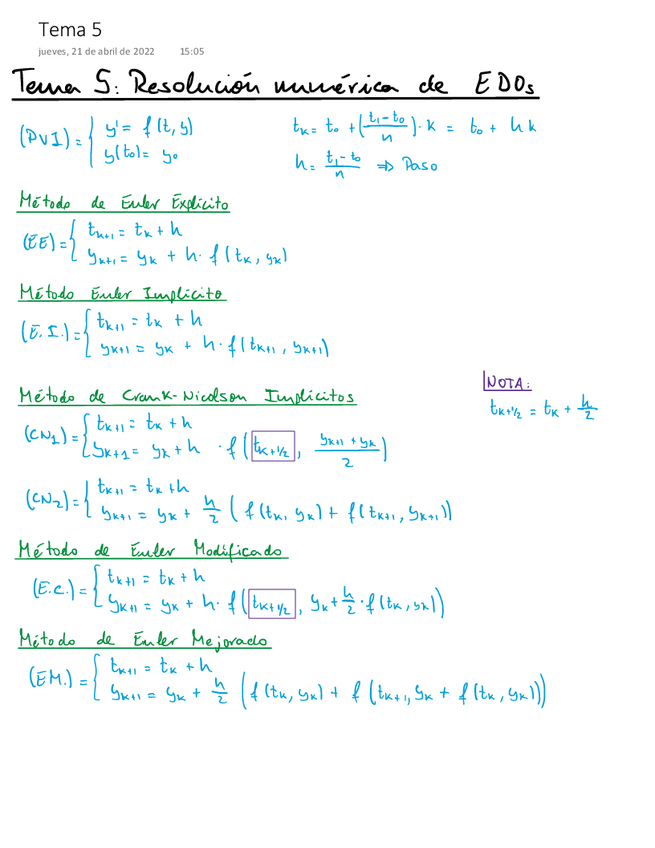 Tema 5
jueves, 21 de abril de 2022 15:05
Tema 5: Resolución numérica de EDOs
(PVI) = { y' = f(t, y)
y(t₀) = y₀
tₖ = t₀ + ((t₁ - t₀)/n) · k = t₀ + hk
h = (t₁ - t₀)/n ⇒ Paso
Método de Euler Explícito
(EE) = { tₖ₊₁ = tₖ + h
yₖ₊₁ = yₖ + h · f(tₖ, yₖ)
Método Euler Implícito
(E.I.) = { tₖ₊₁ = tₖ + h
yₖ₊₁ = yₖ + h · f(tₖ₊₁, yₖ₊₁)
Método de Crank-Nicolson Implícitos
NOTA:
tₖ₊½ = tₖ + h/2
(CN₁) = { tₖ₊₁ = tₖ + h
yₖ₊₁ = yₖ + h · f(tₖ₊½, (yₖ₊₁ + yₖ)/2)
(CN₂) = { tₖ₊₁ = tₖ + h
yₖ₊₁ = yₖ + h/2 (f(tₖ, yₖ) + f(tₖ₊₁, yₖ₊₁))
Método de Euler Modificado
(E.C.) = { tₖ₊₁ = tₖ + h
yₖ₊₁ = yₖ + h · f(tₖ₊½, yₖ + h/2 · f(tₖ, yₖ))
Método de Euler Mejorado
(EM.) = { tₖ₊₁ = tₖ + h
yₖ₊₁ = yₖ + h/2 (f(tₖ, yₖ) + f(tₖ₊₁, yₖ + f(tₖ, yₖ)))